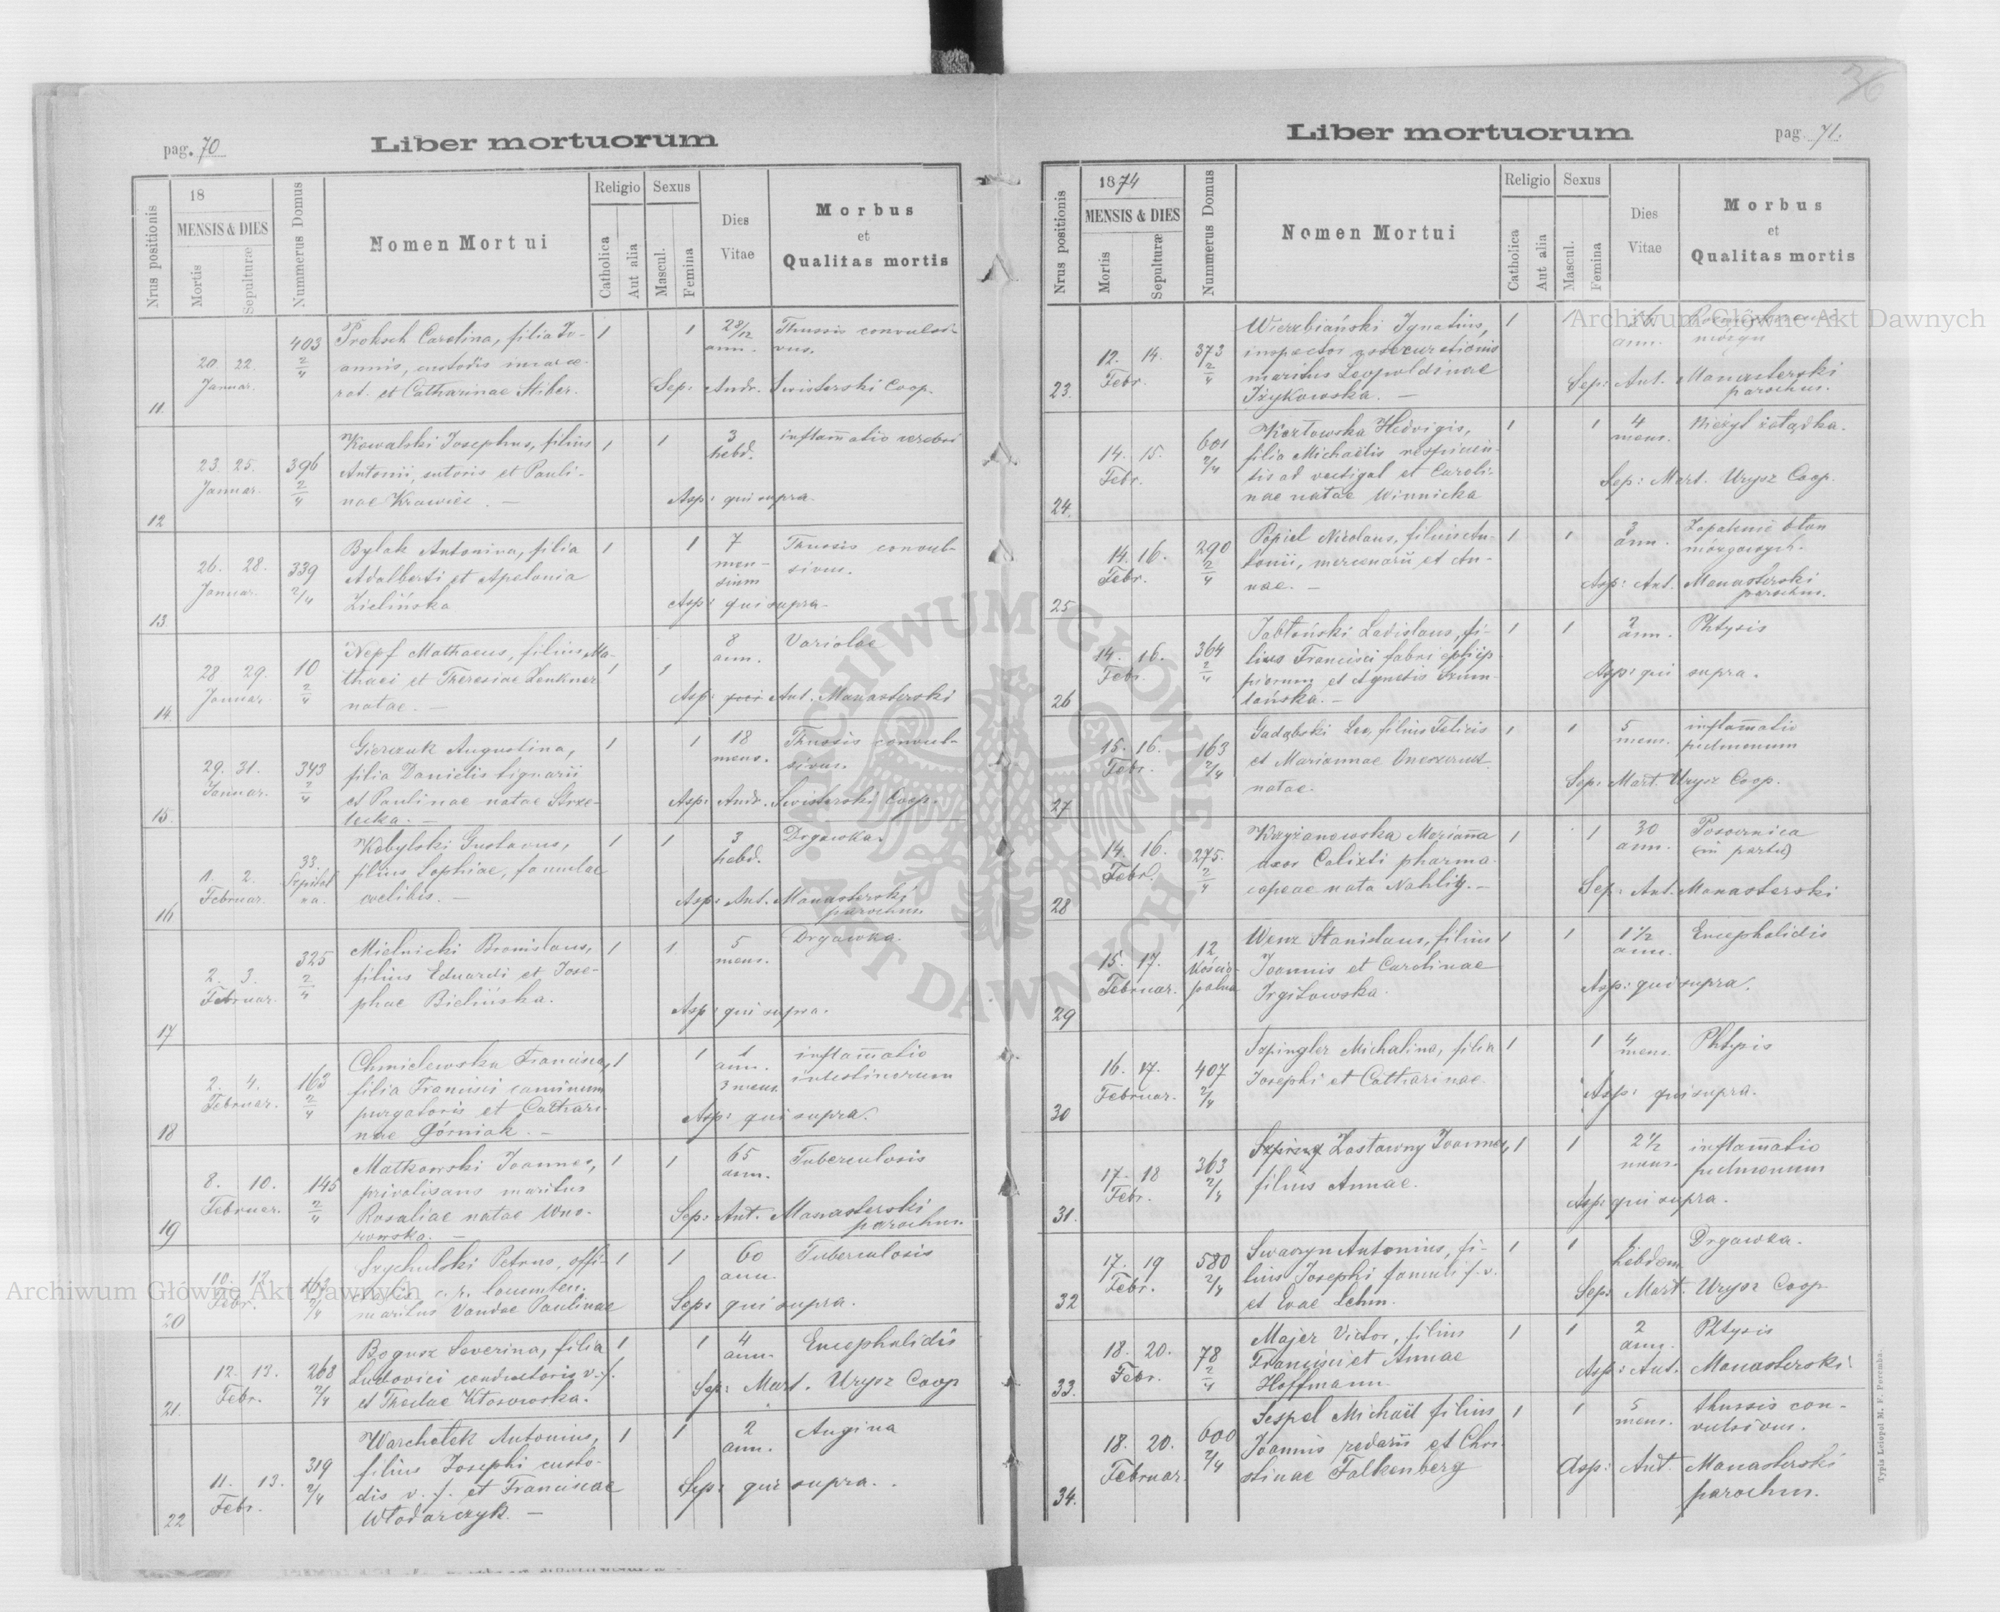 36
pag. 70
Liber mortuorum
Nrus positionis
18
MENSIS & DIES
Mortis
Sepulturæ
Nummerus Domus
Nomen Mortui
Religio
Catholica
Aut alia
Sexus
Mascul.
Femina
Dies
Vitae
Morbus
et
Qualitas mortis
11.
20. 22.
Januar.
403
2/4
Proksch Carolina, filia Jo-
annis, custodis incarce-
rat. et Catharinae Stiber.
1
1
2 8/12
ann.
Thussis convulsi-
vus.
Sep: Andr. Swisterski Coop.
12
23. 25.
Januar.
396
2/4
Kowalski Josephus, filius
Antonii, sutoris et Pauli-
nae Krawiec. —
1
1
3
hebd.
inflam̄atio cerebri
Asp: qui supra.
13.
26. 28.
Januar.
339
2/4
Bylak Antonina, filia
Adalberti et Apolonia
Zielińska
1
1
7
men-
sium
Thussis convul-
sivus.
Asp: qui supra-
14.
28. 29.
Januar.
10
2/4
Nepf Mathaeus, filius Ma-
thaei et Theresiae Zenkner
natae. —
1
1
8
ann.
Variolae
Asp: Ant. Manasterski
15.
29. 31.
Januar.
343
2/4
Gierczuk Augustina,
filia Danielis lignarii
et Paulinae natae Strze-
lecka. —
1
1
18
mens.
Thussis convul-
sivus.
Asp: Andr. Swisterski Coop.
16
1. 2.
Februar.
33.
Szpital
na.
Kobylski Gustavus,
filius Sophiae, famulae
coelibis. —
1
1
3
hebd.
Drgawka.
Asp: Ant. Manasterski
parochus.
17
2. 3.
Februar.
325
2/4
Mielnicki Bronislaus,
filius Eduardi et Jose-
phae Bielińska.
1
1
5
mens.
Drgawka.
Asp: qui supra.
18
2. 4.
Februar.
163
2/4
Chmielewska Francisca,
filia Francisci caminum
purgatoris et Cathari-
nae Górniak. —
1
1
1
ann.
3 mens.
inflam̄atio
intestinorum
Asp: qui supra.
19
8. 10.
Februar.
145
2/4
Matkowski Joannes,
privatisans maritus
Rosaliae natae Wno-
rowska. —
1
1
65
ann.
Tuberculosis
Sep: Ant. Manasterski
parochus.
20
10. 12.
Febr.
163
2/4
Szychulski Petrus, offi-
maritus Vandae Paulinae
1
1
60
ann.
Tuberculosis
Sep: qui supra.
21.
12. 13.
Febr.
268
2/4
Bogusz Severina, filia
Ludovici conductoris v. f.
et Theclae Kłosowska.
1
1
4
ann.
Encephalidis
Sep: Mart. Urysz Coop
22
11. 13.
Febr.
319
2/4
Warchołek Antonius,
filius Josephi custo-
dis v. f. et Franciscae
Włodarczyk. —
1
1
2
ann.
Angina
Sep: qui supra.
Liber mortuorum
pag. 71.
Nrus positionis
1874
MENSIS & DIES
Mortis
Sepulturæ
Nummerus Domus
Nomen Mortui
Religio
Catholica
Aut alia
Sexus
Mascul.
Femina
Dies
Vitae
Morbus
et
Qualitas mortis
23.
12. 14.
Febr.
373
2/4
Wierzbiański Ignatius,
inspector assecurationis
maritus Leopoldinae
Iżykowska. —
1
1
ann.
mózgu
Sep: Ant. Manasterski
parochus.
24.
14. 15.
Febr.
601
2/4
Kozłowska Hedvigis,
filia Michaëlis respicien-
tis ad vectigal et Caroli-
nae natae Winnicka
1
1
4
mens.
Nieżyt żołądka.
Sep: Mart. Urysz Coop.
25
14. 16.
Febr.
290
2/4
Popiel Nicolaus, filius An-
tonii, mercenarii et An-
nae. —
1
1
3
ann.
Zapalenie błon
mózgowych.
Asp: Ant. Manasterski
parochus.
26
14. 16.
Febr.
364
2/4
Jabłoński Ladislaus, fi-
lius Francisci fabri ephip-
piorum et Agnetis Szum-
lańska. —
1
1
2
ann.
Phtysis
Asp: qui supra.
27
15. 16.
Febr.
163
2/4
Gadąbski Leo, filius Felicis
et Mariannae
natae.
1
1
5
mens.
inflam̄atio
pulmonum
Sep: Mart Urysz Coop.
28
14. 16.
Febr.
275.
2/4
Krzyżanowska Mariam̄a
uxor Calixti pharma-
copeae nata Nahlig. —
1
1
30
ann.
Posocznica
(in partu)
Sep: Ant. Manasterski
29
15. 17.
Februar.
12
Kościo-
palna
Wenz Stanislaus, filius
Joannis et Carolinae
Irgiłowska.
1
1
1 1/2
ann.
Encephalidis
Asp: qui supra.
30
16. 17.
Februar.
407
2/4
Szpingler Michalina, filia
Josephi et Catharinae.
1
1
4
mens.
Phtysis
Asp: qui supra.
31.
17. 18
Febr.
363
2/4
Zastawny Joannes,
filius Annae.
1
1
2 1/2
mens.
inflam̄atio
pulmonum
Asp: qui supra.
32
17. 19
Febr.
580
2/4
Swaryn Antonius, fi-
lius Josephi famuli f. v.
et Evae Lehm.
1
1
1
hebdom.
Drgawka.
Sep: Mart. Urysz Coop.
33.
18. 20.
Febr.
78
2/4
Majer Victor, filius
Francisci et Annae
Hoffmann.
1
1
2
ann.
Phtysis
Asp: Ant. Manasterski.
34.
18. 20.
Februar.
600
2/4
Sespel Michaël filius
Joannis redarii et Chri-
stinae Falkenberg
1
1
5
mens.
thussis con-
vulsivus.
Asp: Ant. Manasterski
parochus.
Typis Leopol M. F. Poremba.
Archiwum Główne Akt Dawnych
Archiwum Główne Akt Dawnych
ARCHIWUM GŁÓWNE
AKT DAWNYCH